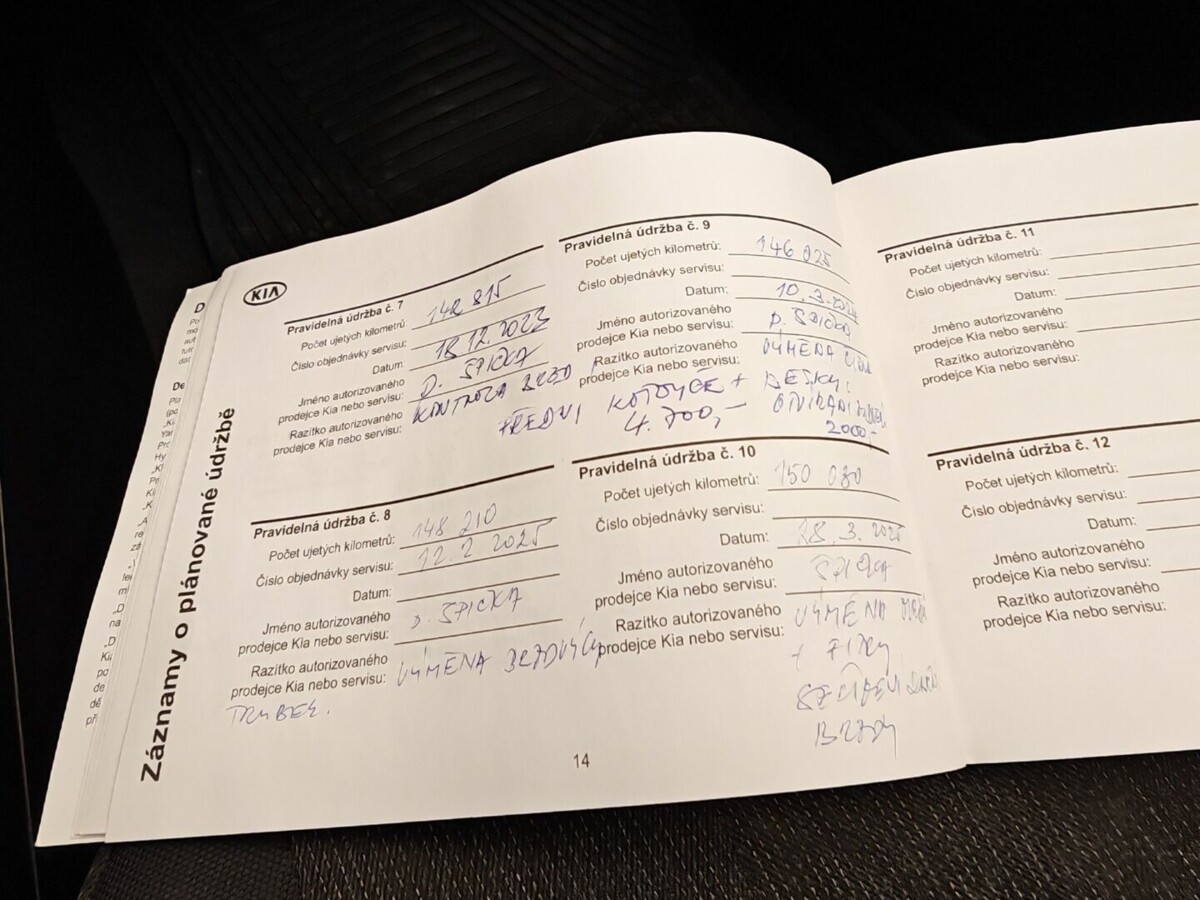 Záznamy o plánované údržbě
KIA
Pravidelná údržba č. 7
Počet ujetých kilometrů: 142 815
Číslo objednávky servisu:
Datum: 18.12.2023
Jméno autorizovaného
prodejce Kia nebo servisu: D. SPICKA
Razítko autorizovaného
prodejce Kia nebo servisu: KONTROLA BRZD
Pravidelná údržba č. 8
Počet ujetých kilometrů: 148 210
Číslo objednávky servisu: 12.2 2025
Datum:
Jméno autorizovaného
prodejce Kia nebo servisu: D. SPICKA
Razítko autorizovaného
prodejce Kia nebo servisu: VÝMĚNA BRZDOVÝCH
TRUBEK.
Pravidelná údržba č. 9
Počet ujetých kilometrů: 146 025
Číslo objednávky servisu:
Datum: 10.3.
Jméno autorizovaného
prodejce Kia nebo servisu: D. SPICKA
Razítko autorizovaného
prodejce Kia nebo servisu: VÝMĚNA
PŘEDNÍ KOTOUČE + DESKY
4.700,- 2000,-
Pravidelná údržba č. 10
Počet ujetých kilometrů: 150 080
Číslo objednávky servisu:
Datum: 28.3.2025
Jméno autorizovaného
prodejce Kia nebo servisu: SPICKA
Razítko autorizovaného
prodejce Kia nebo servisu: VÝMĚNA
+ FILTRY
SEŘÍZENÍ
BRZDY
14
Pravidelná údržba č. 11
Počet ujetých kilometrů:
Číslo objednávky servisu:
Datum:
Jméno autorizovaného
prodejce Kia nebo servisu:
Razítko autorizovaného
prodejce Kia nebo servisu:
Pravidelná údržba č. 12
Počet ujetých kilometrů:
Číslo objednávky servisu:
Datum:
Jméno autorizovaného
prodejce Kia nebo servisu:
Razítko autorizovaného
prodejce Kia nebo servisu: